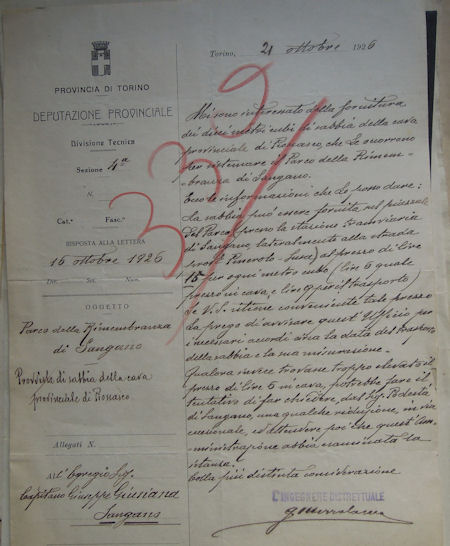 PROVINCIA DI TORINO
DEPUTAZIONE PROVINCIALE
Divisione Tecnica
Sezione 4ª
N.
Cat.ª Fasc.º
RISPOSTA ALLA LETTERA
16 ottobre 1926
Div. Sez. Num.
OGGETTO
Parco della Rimembranza
di Sangano
Provvista di sabbia della cava
provinciale di Piossasco
Allegati N.
All' Egregio Sig.
Capitano Giuseppe Giusiana
Sangano
Torino, 21 ottobre 1926
32
Mi sono interessato della fornitura
dei dieci metri cubi di sabbia della cava
provinciale di Piossasco, che Le occorrono
per sistemare il Parco della Rimem-
branza di Sangano.
Ecco le informazioni che Le posso dare:
La sabbia può essere fornita nel piazzale
del Parco presso la stazione tramviaria
di Sangano, lateralmente alla strada
prov. Pinerolo-Susa, al prezzo di lire
15 per ogni metro cubo (lire 6 quale
prezzo in cava, e lire 9 per il trasporto)
Se V.S. ritiene conveniente tale prezzo
La prego di avvisare quest'Ufficio per
i necessari accordi circa la data del trasporto
della sabbia e la sua misurazione.
Qualora invece trovasse troppo elevato il
prezzo di lire 6 in cava, potrebbe fare il
tentativo di far chiedere, dal Sig. Podestà
di Sangano, una qualche riduzione, in via
eccezionale, ed attendere poi che quest'Am-
ministrazione abbia esaminata la
istanza.
Colla più distinta considerazione
L'INGEGNERE DISTRETTUALE